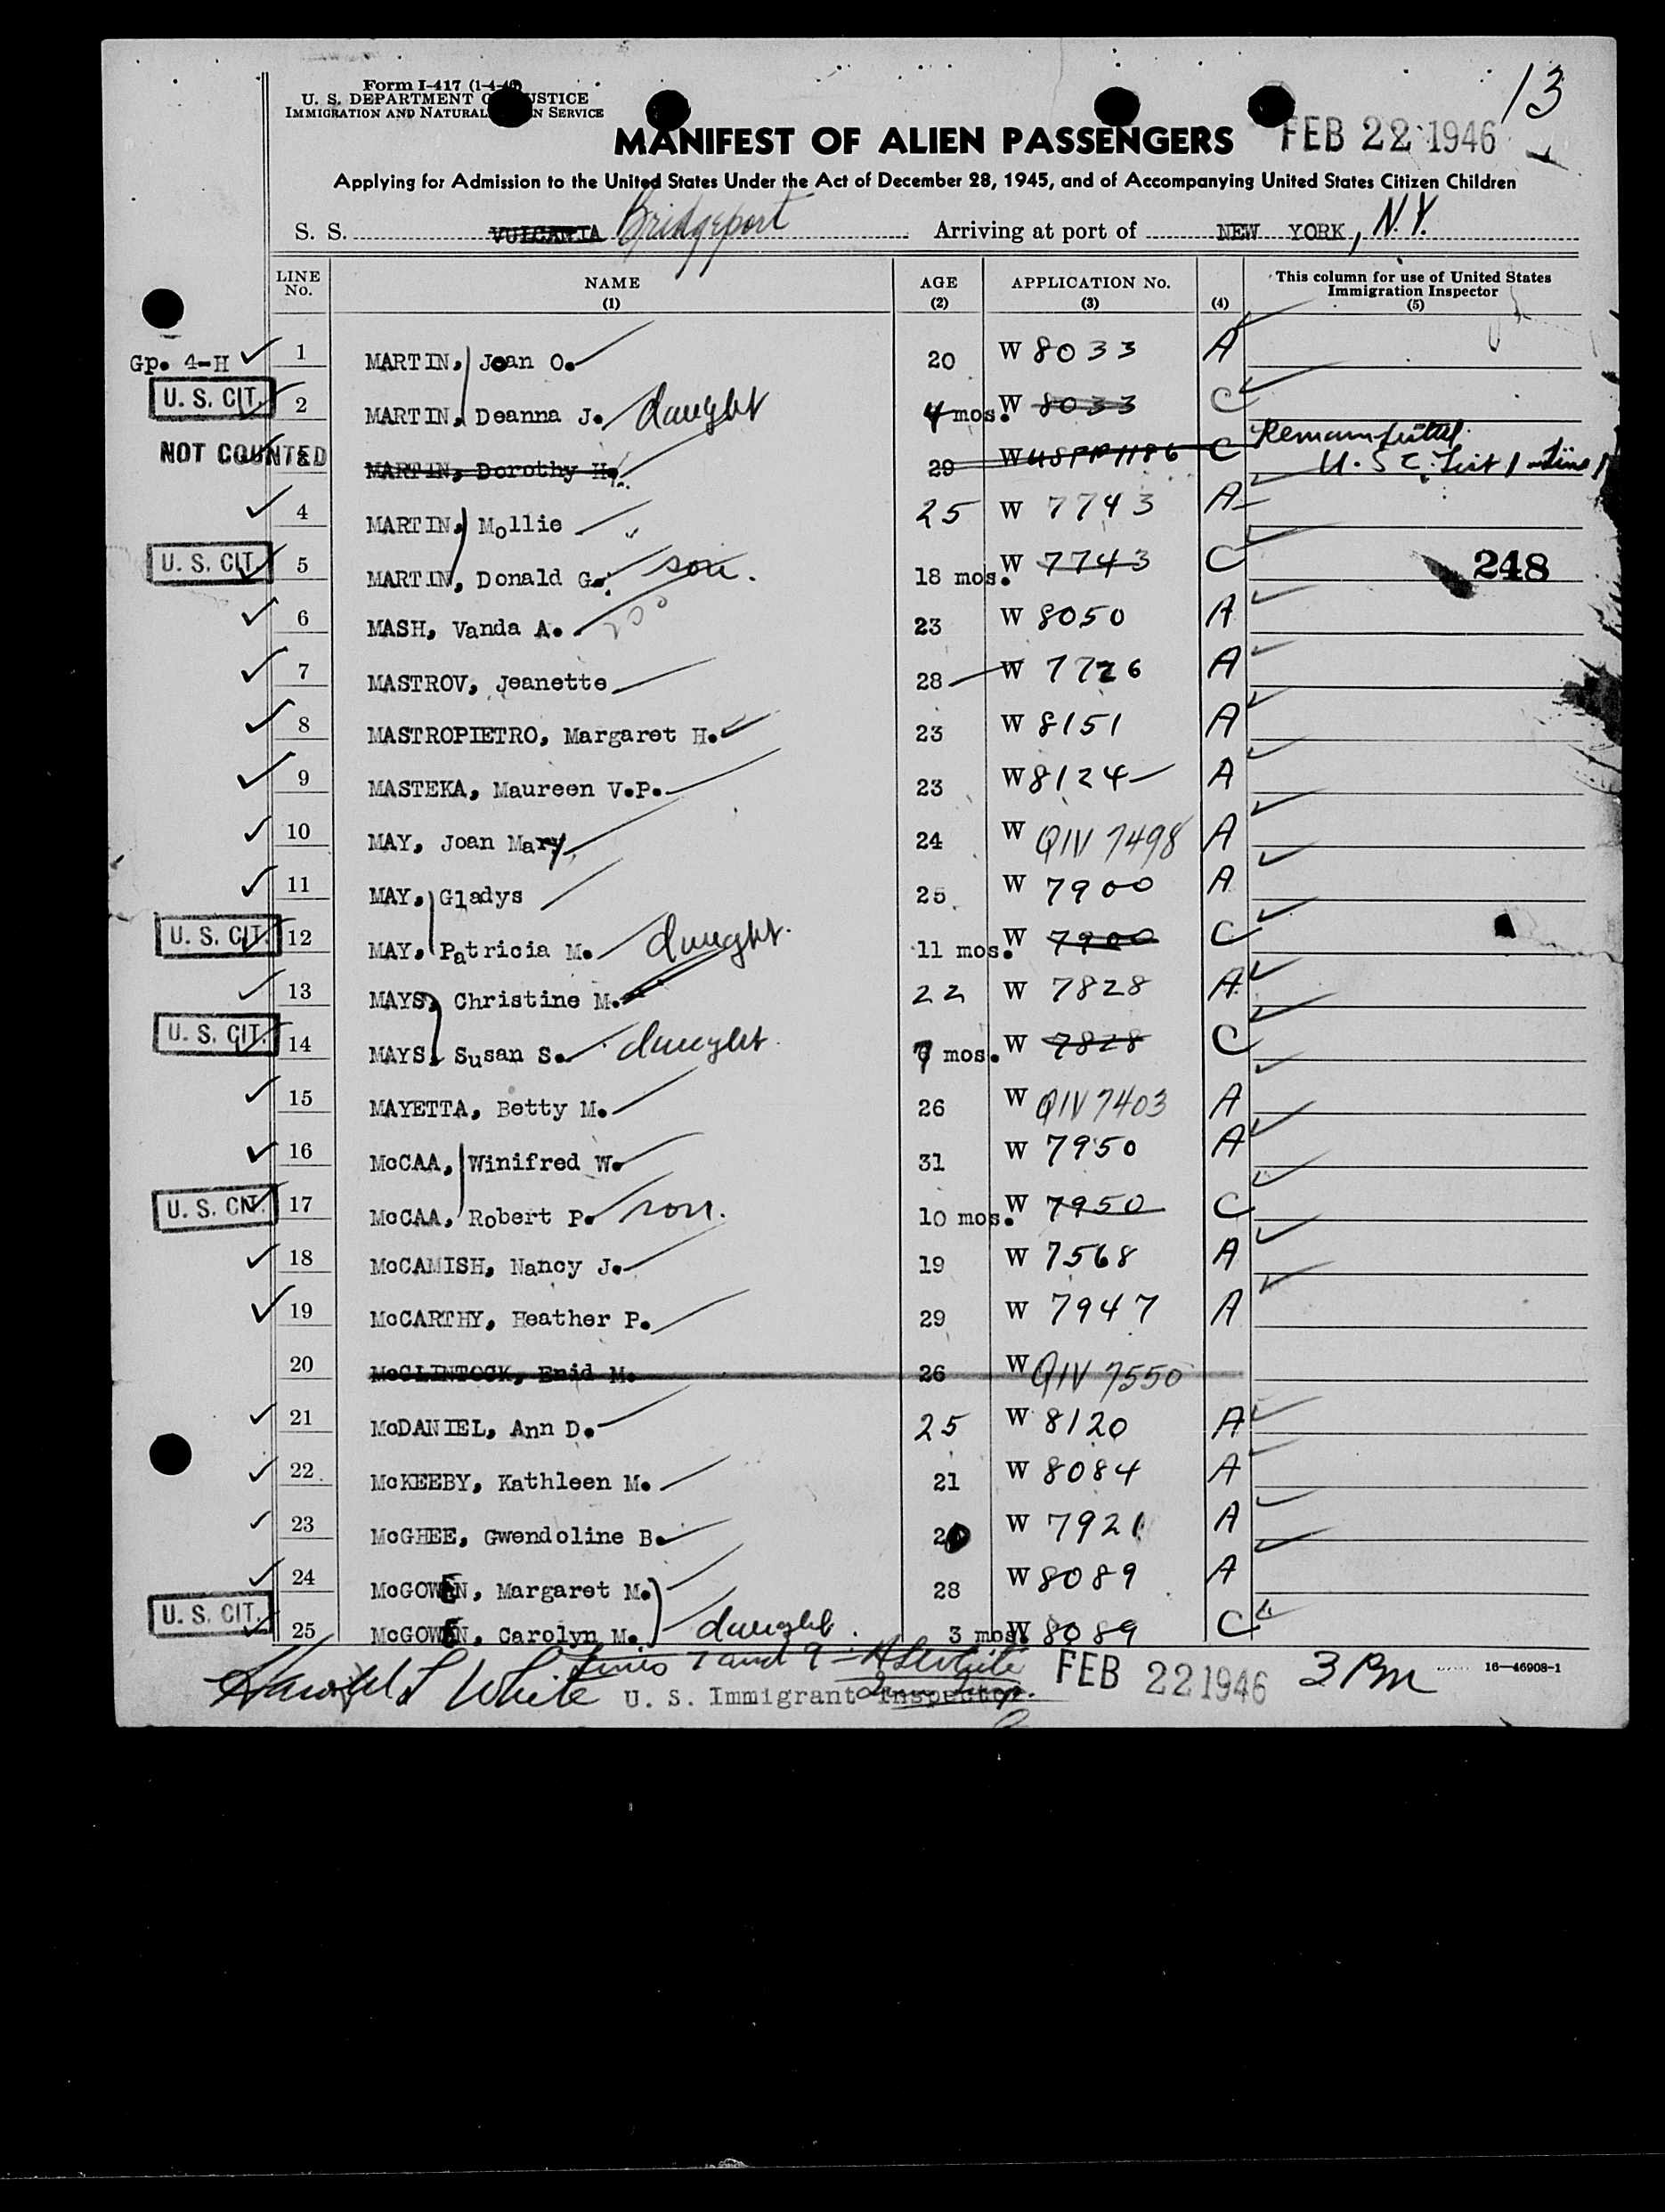 13
Form I-417
U. S. DEPARTMENT OF JUSTICE
IMMIGRATION AND NATURALIZATION SERVICE
MANIFEST OF ALIEN PASSENGERS FEB 22 1946
Applying for Admission to the United States Under the Act of December 28, 1945, and of Accompanying United States Citizen Children
S. S. VULCANIA Bridgeport Arriving at port of NEW YORK, N.Y.
LINE No. NAME (1) AGE (2) APPLICATION No. (3) (4) This column for use of United States Immigration Inspector (5)
Gp. 4-H 1 MARTIN, Jean O. 20 W 8033 A
U. S. CIT. 2 MARTIN, Deanna J. daught 4 mos. W 8033 C
NOT COUNTED 3 MARTIN, Dorothy H. 29 W USPP 1186 C Remanifested
U.S.C. List 1 Line 1
4 MARTIN, Mollie 25 W 7743 A
U. S. CIT. 5 MARTIN, Donald G. son. 18 mos. W 7743 C 248
6 MASH, Vanda A. 23 W 8050 A
7 MASTROV, Jeanette 28 W 7726 A
8 MASTROPIETRO, Margaret H. 23 W 8151 A
9 MASTEKA, Maureen V.P. 23 W 8124 A
10 MAY, Joan Mary 24 W QIV 7498 A
11 MAY, Gladys 25 W 7900 A
U. S. CIT. 12 MAY, Patricia M. daught. 11 mos. W 7900 C
13 MAYS, Christine M. 22 W 7828 A
U. S. CIT. 14 MAYS, Susan S. daught 7 mos. W 7828 C
15 MAYETTA, Betty M. 26 W QIV 7403 A
16 McCAA, Winifred W. 31 W 7950 A
U. S. CIT. 17 McCAA, Robert P. son. 10 mos. W 7950 C
18 McCAMISH, Nancy J. 19 W 7568 A
19 McCARTHY, Heather P. 29 W 7947 A
20 McCLINTOCK, Enid M. 26 W QIV 7550
21 McDANIEL, Ann D. 25 W 8120 A
22 McKEEBY, Kathleen M. 21 W 8084 A
23 McGHEE, Gwendoline B. W 7921 A
24 McGOWEN, Margaret M. 28 W 8089 A
U. S. CIT. 25 McGOWEN, Carolyn M. daught. 3 mos. W 8089 C
Lines 7 and 9 - H L White
Harold L White U. S. Immigrant Inspector. FEB 22 1946 3 Pm 16—46908-1